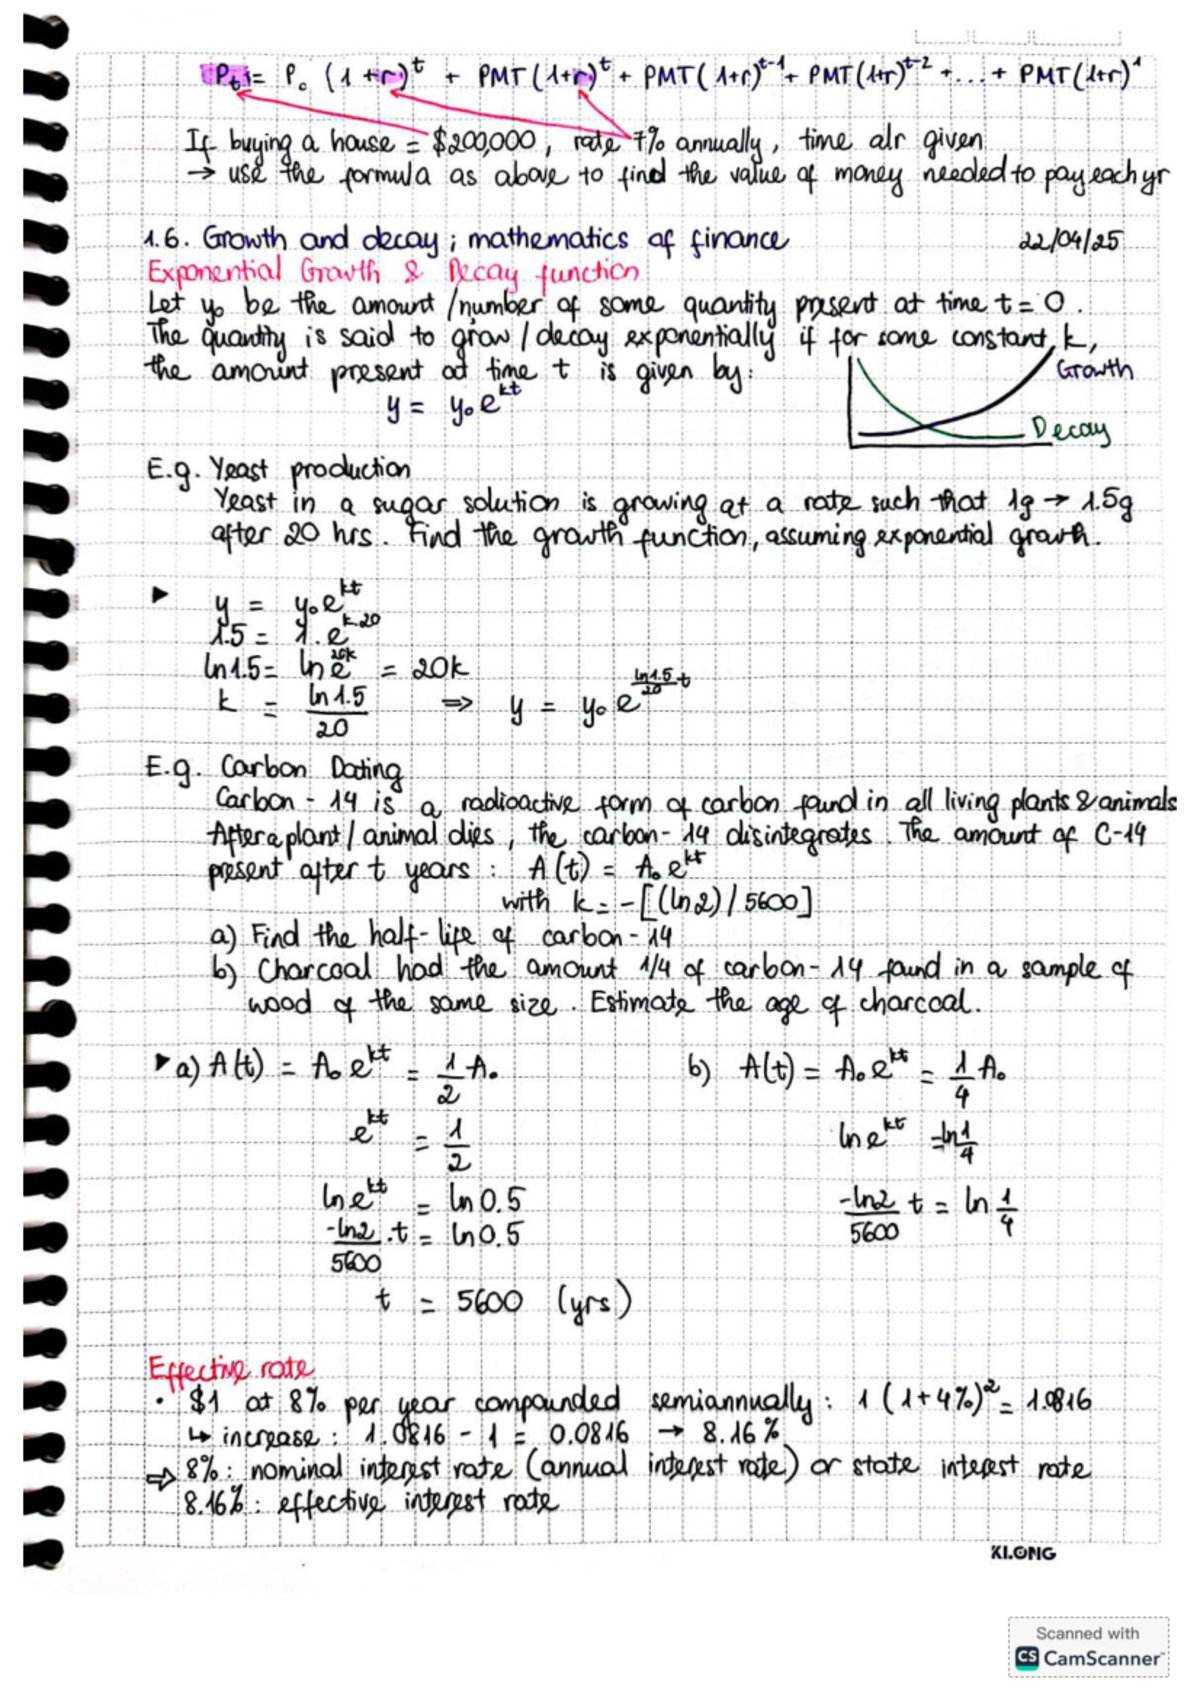 P_t = P₀ (1+r)^t + PMT(1+r)^t + PMT(1+r)^(t-1) + PMT(1+r)^(t-2) + ... + PMT(1+r)^1
If buying a house = $200,000, rate 7% annually, time alr given
→ use the formula as above to find the value of money needed to pay each yr
1.6. Growth and decay; mathematics of finance 22/04/25
Exponential Growth & Decay function
Let y₀ be the amount/number of some quantity present at time t = 0.
The quantity is said to grow/decay exponentially if for some constant k,
the amount present at time t is given by:
y = y₀e^(kt)
Growth
Decay
E.g. Yeast production
Yeast in a sugar solution is growing at a rate such that 1g → 1.5g
after 20 hrs. Find the growth function, assuming exponential growth.
y = y₀e^(kt)
1.5 = 1.e^(k.20)
ln1.5 = ln e^(20k) = 20k
k = ln1.5/20 ⇒ y = y₀e^(ln1.5/20 t)
E.g. Carbon Dating
Carbon-14 is a radioactive form of carbon found in all living plants & animals
After a plant/animal dies, the carbon-14 disintegrates. The amount of C-14
present after t years: A(t) = A₀e^(kt)
with k = -[(ln2)/5600]
a) Find the half-life of carbon-14
b) Charcoal had the amount 1/4 of carbon-14 found in a sample of
wood of the same size. Estimate the age of charcoal.
a) A(t) = A₀e^(kt) = 1/2 A₀
e^(kt) = 1/2
ln e^(kt) = ln 0.5
-ln2/5600 .t = ln 0.5
t = 5600 (yrs)
b) A(t) = A₀e^(kt) = 1/4 A₀
ln e^(kt) = ln 1/4
-ln2/5600 t = ln 1/4
Effective rate
• $1 at 8% per year compounded semiannually: 1(1+4%)² = 1.0816
↳ increase: 1.0816 - 1 = 0.0816 → 8.16%
⇒ 8%: nominal interest rate (annual interest rate) or state interest rate
8.16%: effective interest rate
KLONG
Scanned with
CS CamScanner